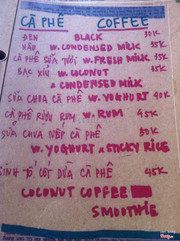 CÀ PHÊ COFFEE
ĐEN BLACK 30K
NÂU w. CONDENSED MILK 35K
CÀ PHÊ SỮA TƯƠI w. FRESH MILK 35K
BẠC XỈU w. COCONUT 35K
& CONDENSED MILK
SỮA CHUA CÀ PHÊ w. YOGHURT 40K
CÀ PHÊ RƯỢU RUM w. RUM 45K
SỮA CHUA NẾP CÀ PHÊ 50K
w. YOGHURT & STICKY RICE
SINH TỐ CỐT DỪA CÀ PHÊ 45K
COCONUT COFFEE
SMOOTHIE